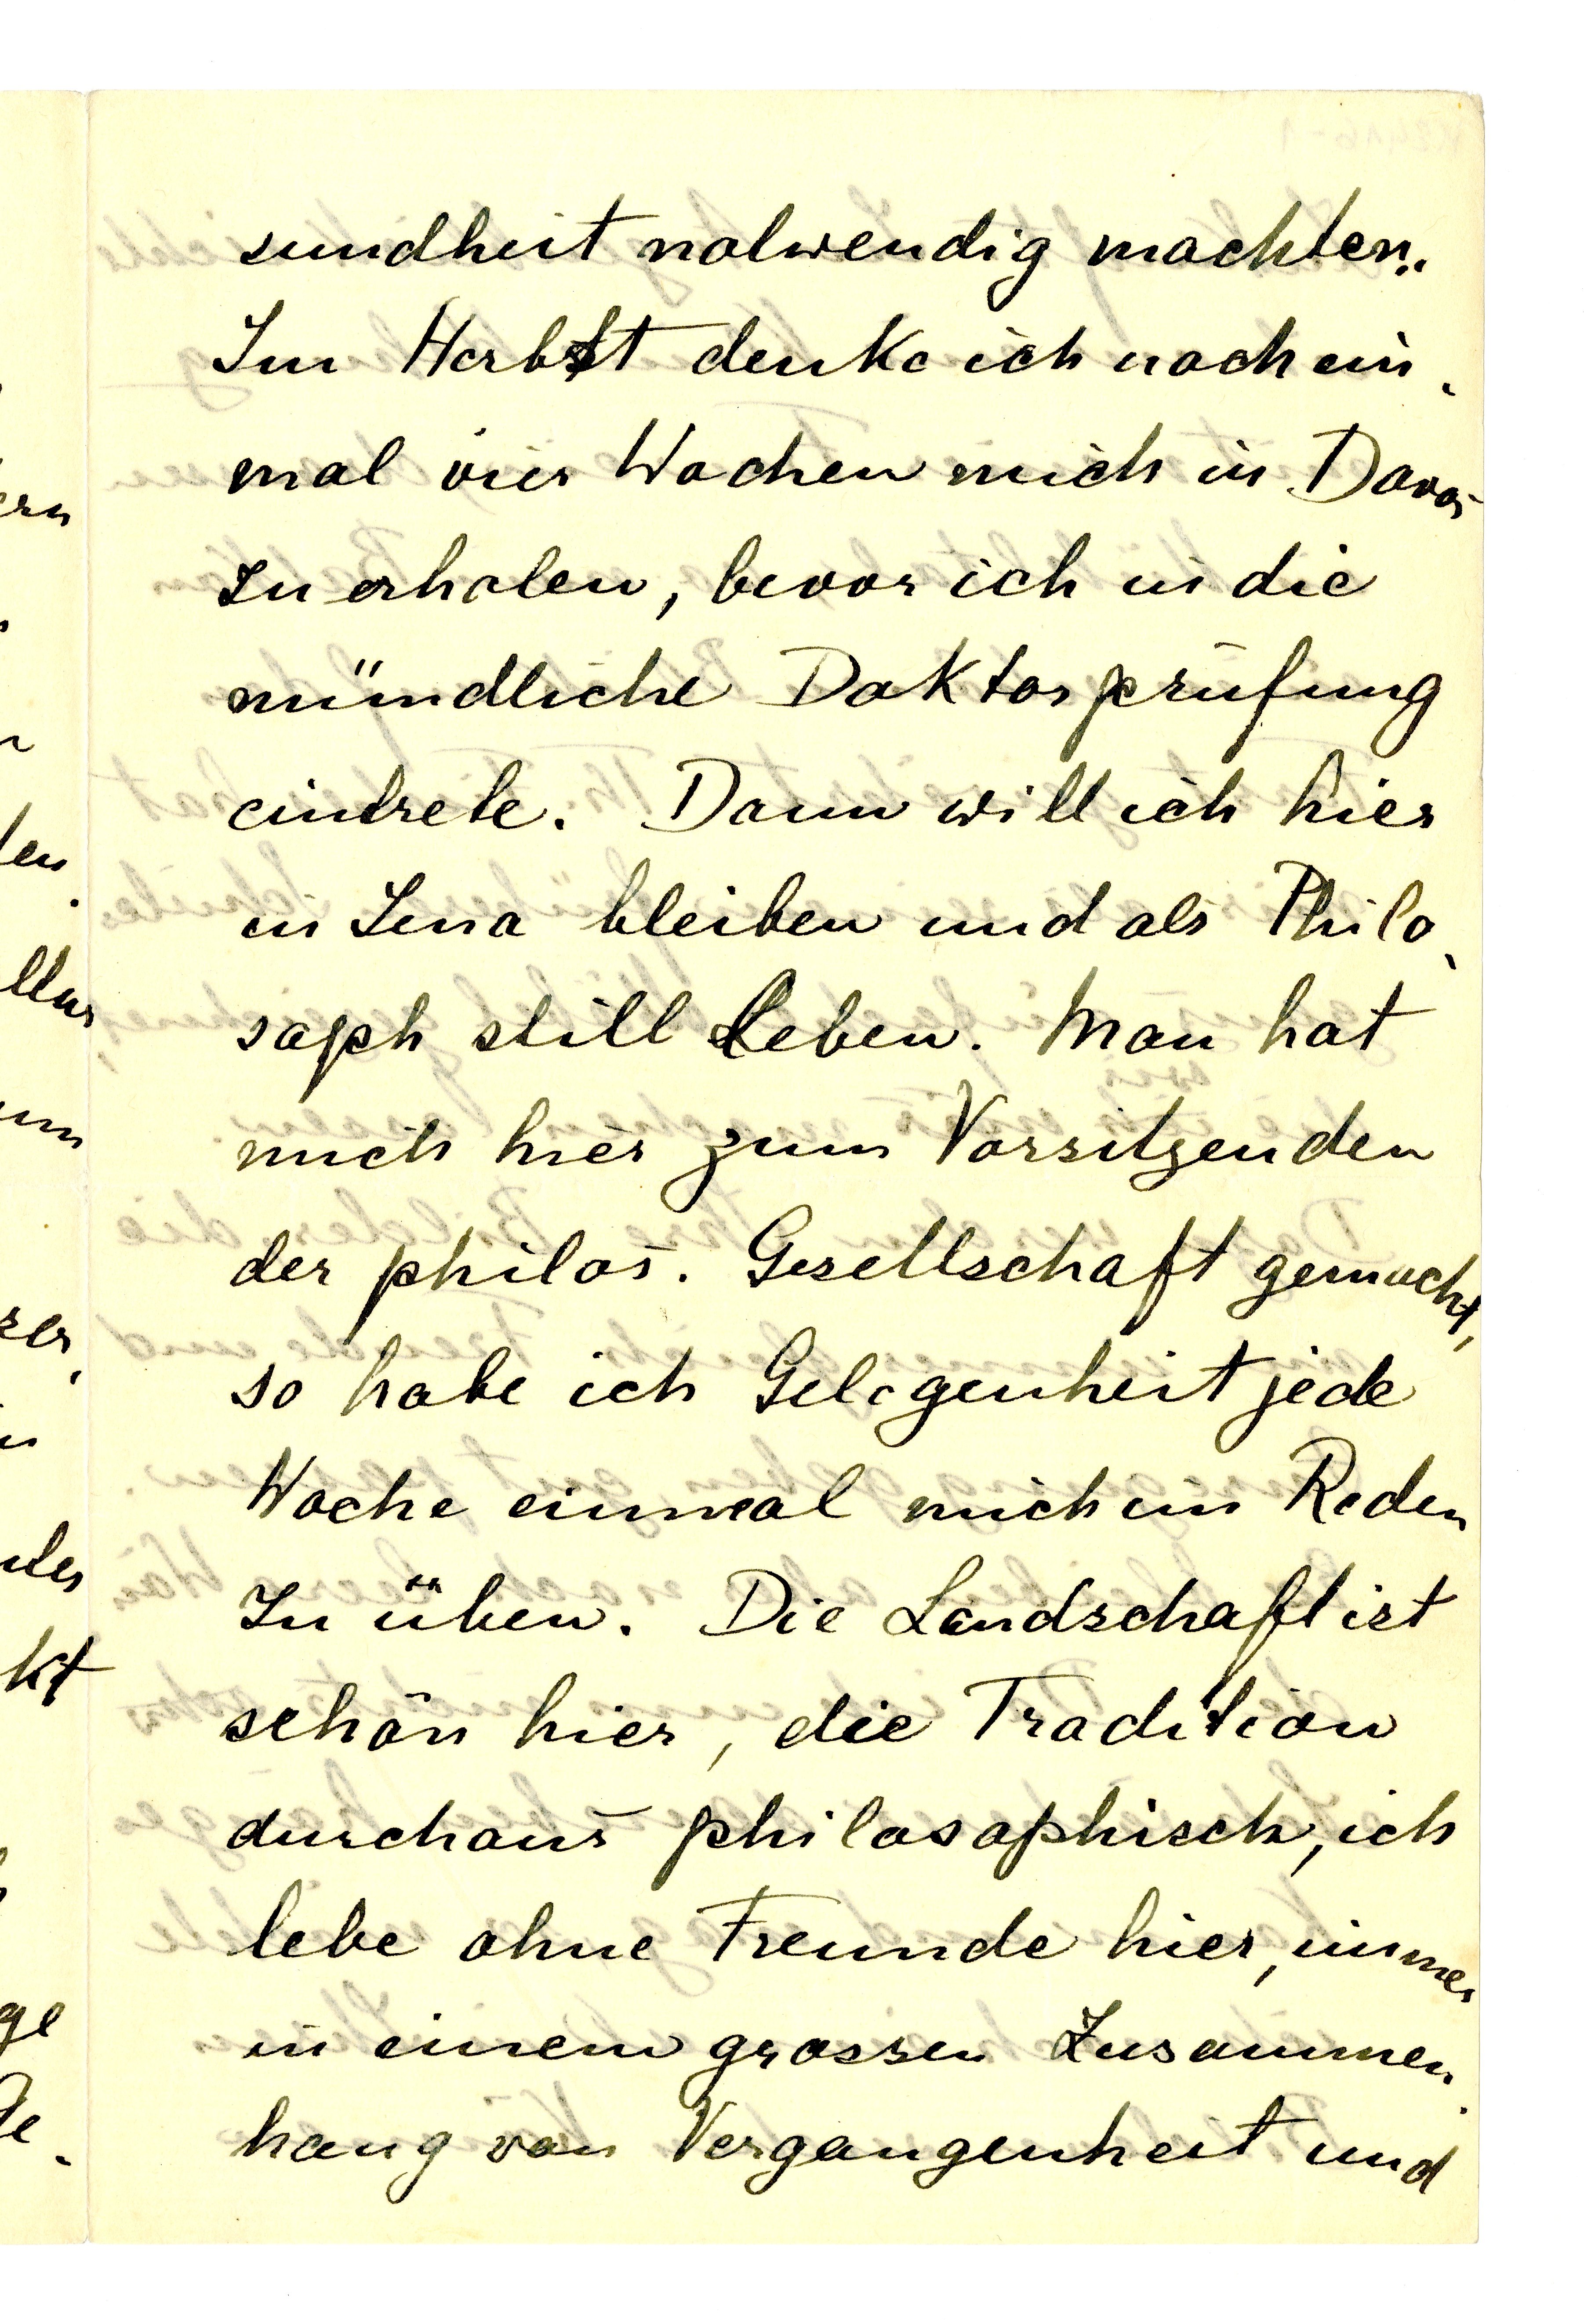 sundheit notwendig machten.
Im Herbst denke ich noch ein-
mal vier Wochen mich in Davos
zu erholen, bevor ich in die
mündliche Doktorprüfung
eintrete. Dann will ich hier
in Jena bleiben und als Philo-
soph still leben. Man hat
mich hier zum Vorsitzenden
der philos. Gesellschaft gemacht,
so habe ich Gelegenheit jede
Woche einmal mich im Reden
zu üben. Die Landschaft ist
schön hier, die Tradition
durchaus philosophisch, ich
lebe ohne Freunde hier, immer
in einem grossen Zusammen-
hang von Vergangenheit und